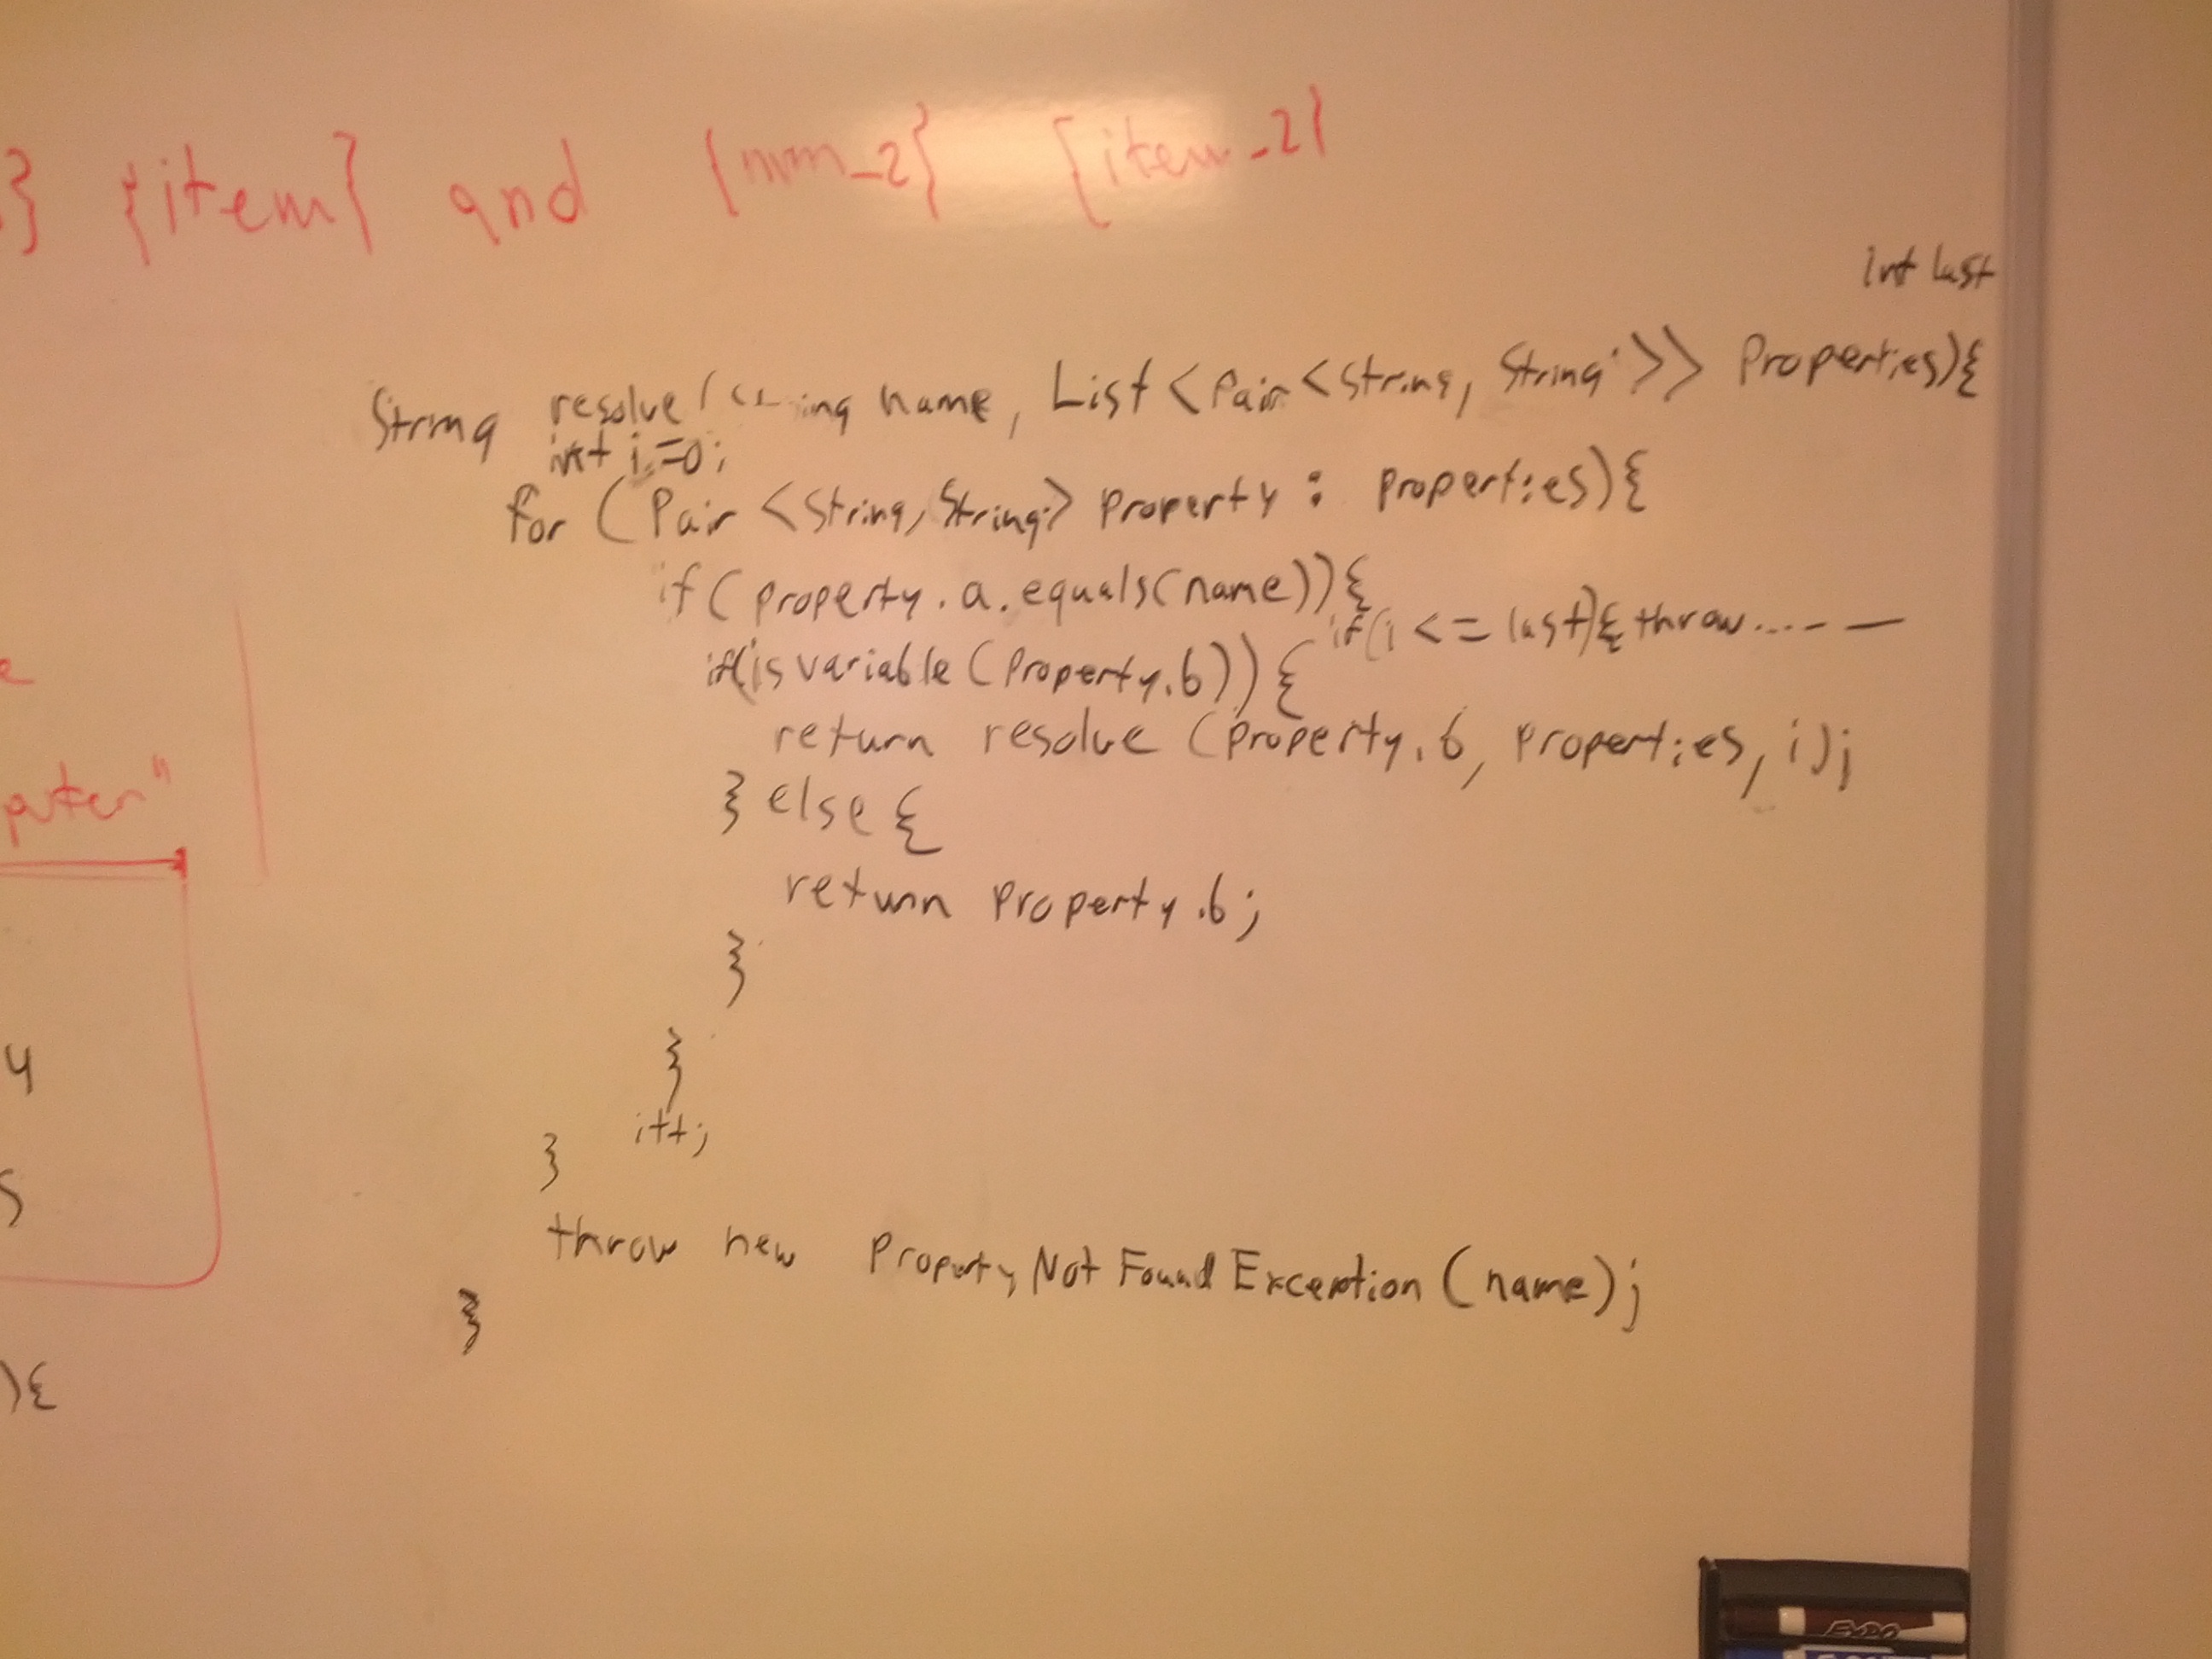 } {item} and {num_2} {item_2}
int last
String resolve(String name, List<Pair<String, String>> Properties){
int i=0;
for (Pair <String, String> property : properties){
if( property.a.equals(name)){
if(i <= last){ throw.....- —
if(isvariable(Property.b)){
return resolve (property.b, properties, i);
} else {
return property.b;
}
}
i++;
}
throw new PropertyNotFoundException(name);
}
e
puter"
4
5
){
EXPO